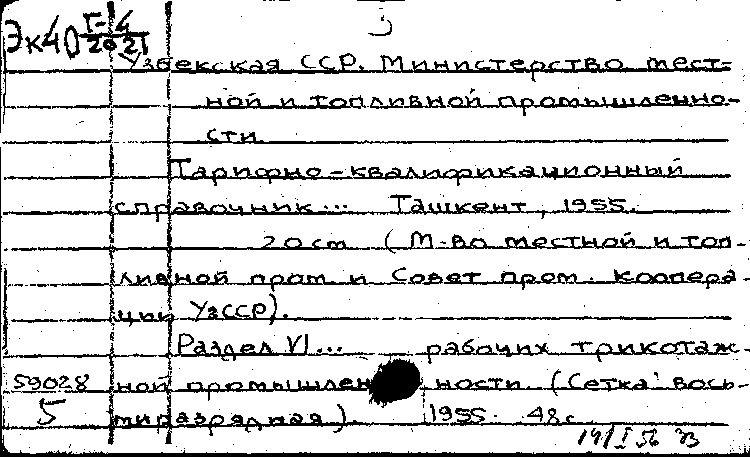 Эк40 Г-4
20 21
Узбекская ССР. Министерство мест=
ной и топливной промышленно-
сти
Тарифно-квалификационный
справочник... Ташкент, 1955.
20 см (М-во местной и топ-
ливной пром и Совет пром. коопера-
ции УзССР).
Раздел VI... рабочих трикотаж-
59028 ной промышленности. (Сетка: вось-
5 миразрядная). 1955. 48 с.